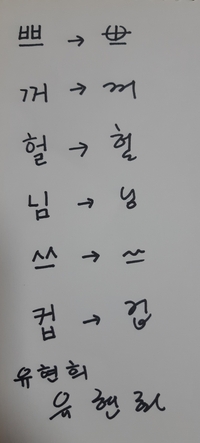 쁘 → 쁘
꺼 → 꺼
헐 → 헐
님 → 닝
쓰 → 쓰
컵 → 컵
유현희
유현희